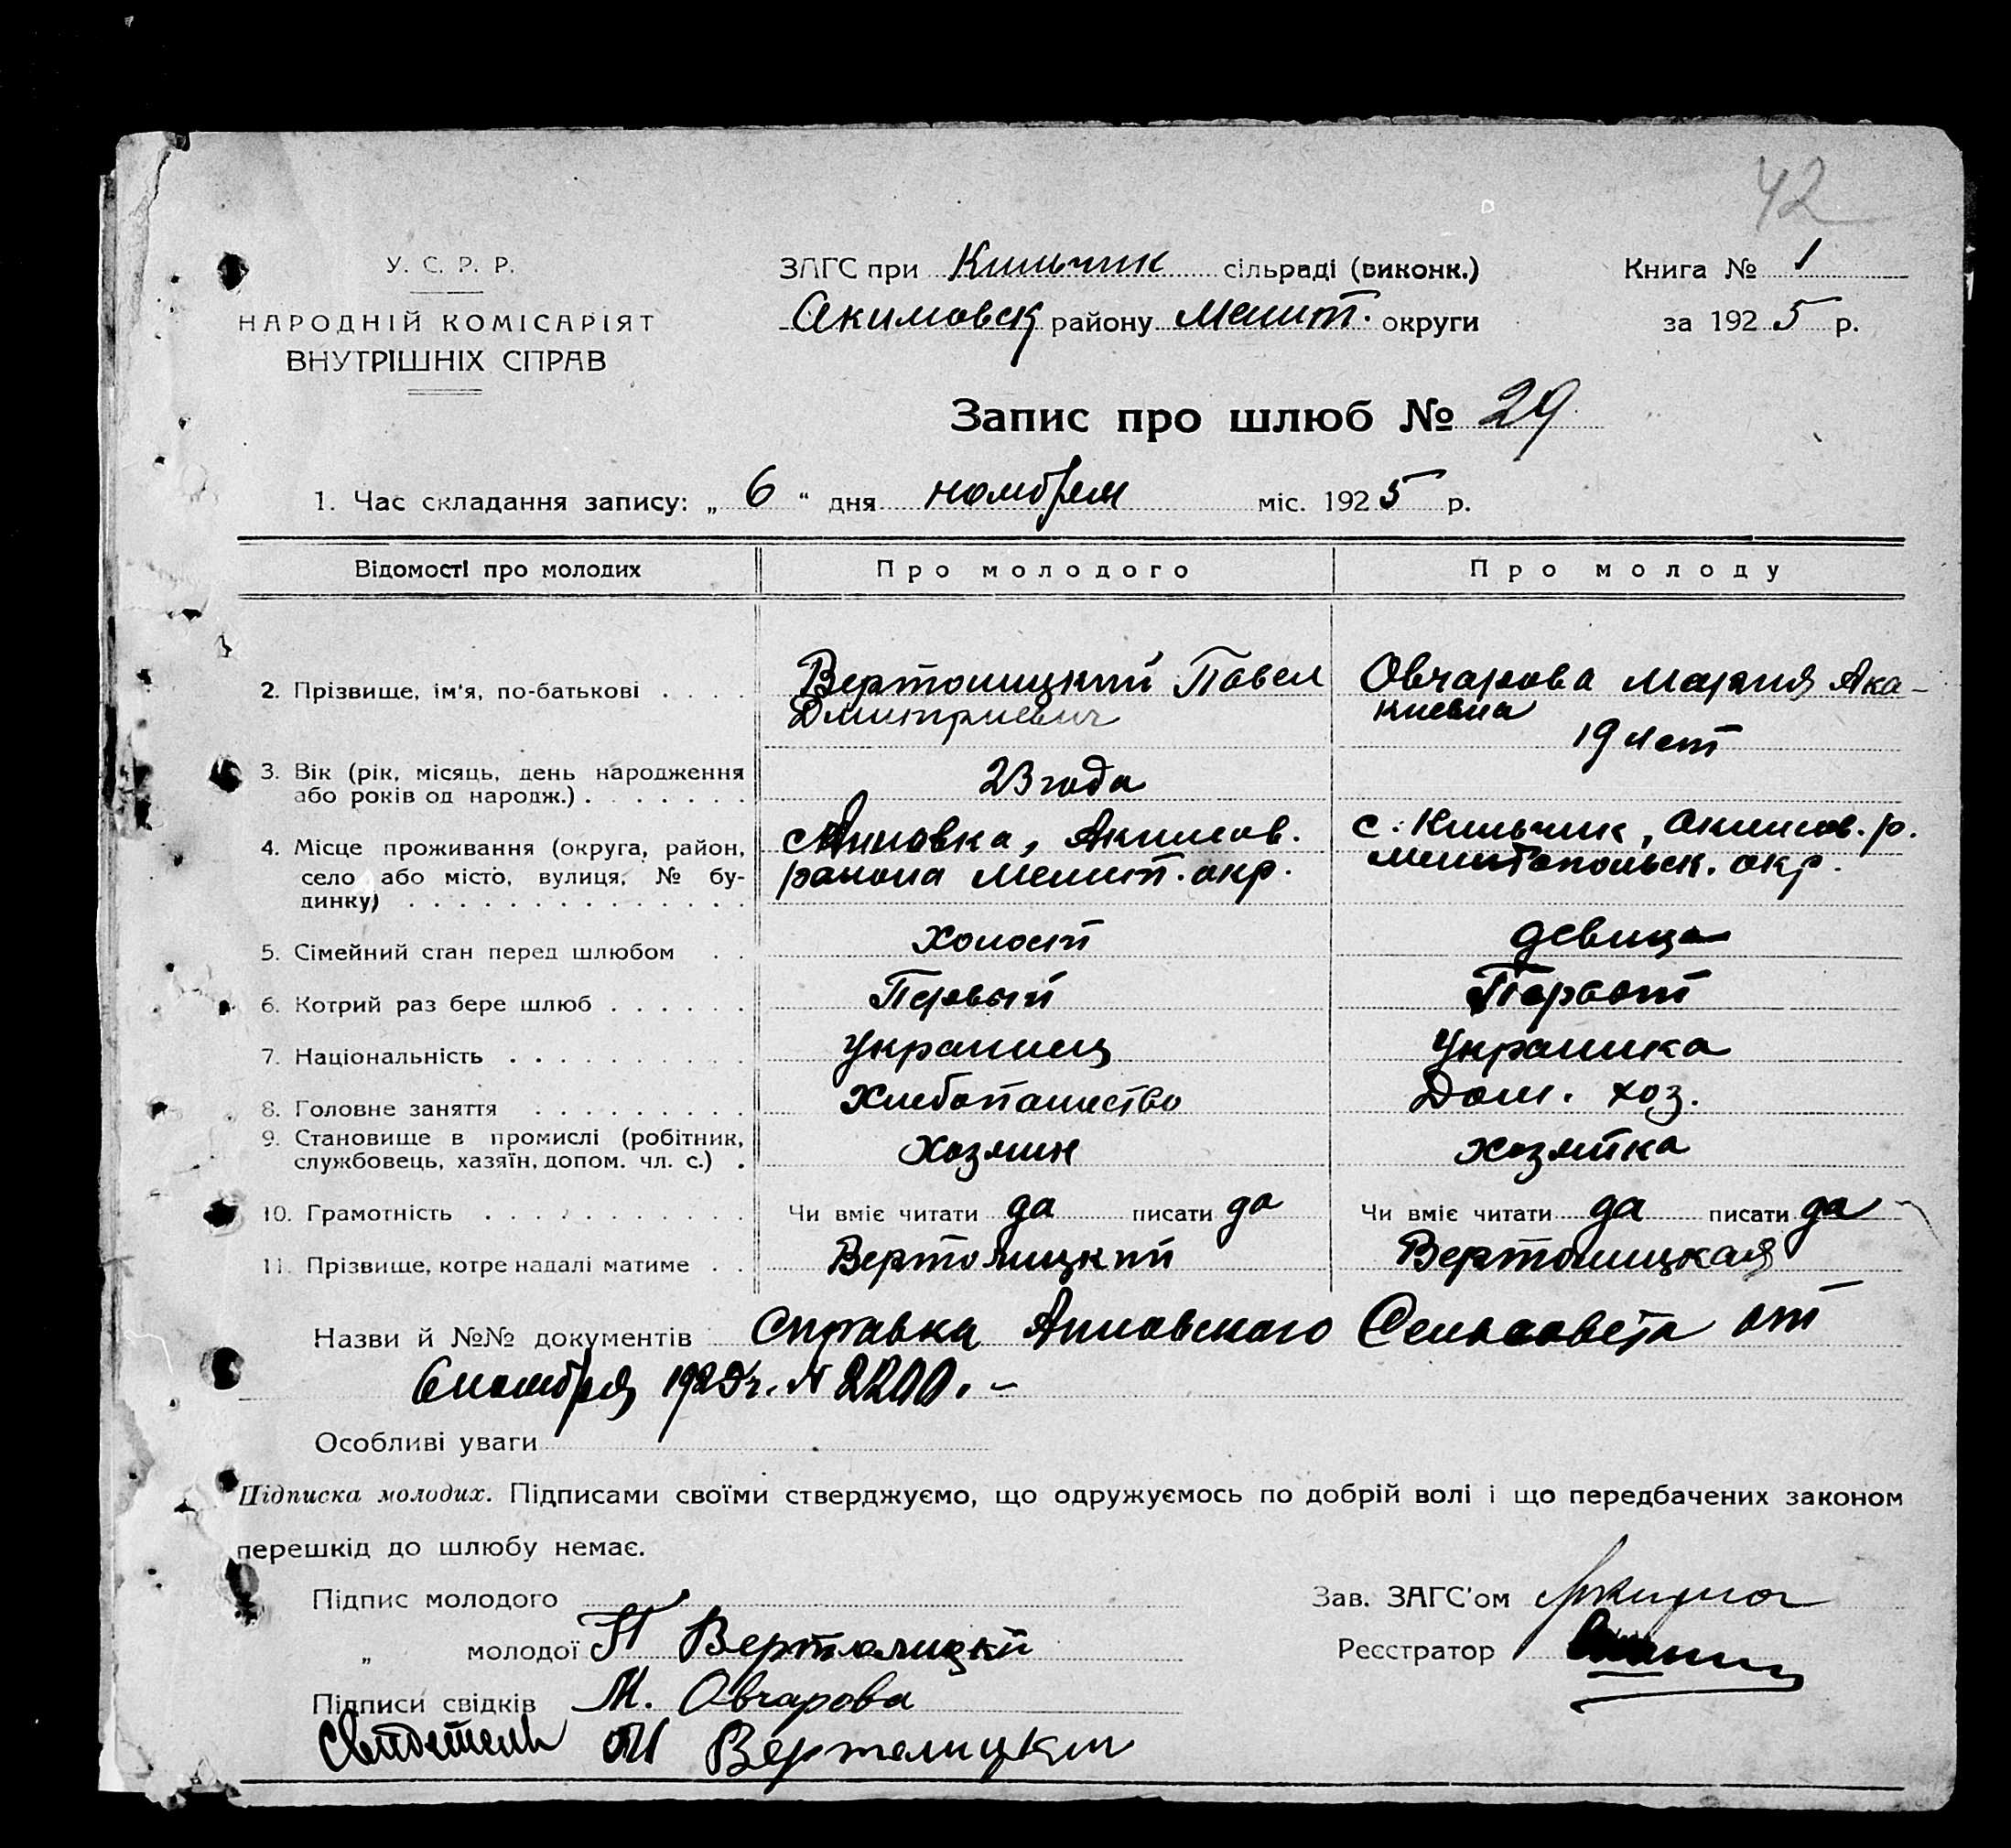 42
У. С. Р. Р.
НАРОДНІЙ КОМІСАРІЯТ
ВНУТРІШНІХ СПРАВ
ЗАГС при Кильчик сільраді (виконк.)
Акимовск району Мелит. округи
Книга № 1
за 1925 р.
Запис про шлюб № 29
1. Час складання запису: „ 6 “ дня ноября міс. 1925 р.
Відомості про молодих Про молодого Про молоду
2. Прізвище, ім'я, по-батькові . . . . Вертолицкий Павел Овчарова Мария Ака-
Дмитриевич киевна
19 лет
3. Вік (рік, місяць, день народження
або років од народж.) . . . . . . . 23 года
4. Місце проживання (округа, район, с. Анновка, Акимов. с. Кильчик, Акимов. р.
село або місто, вулиця, № бу- района Мелит. окр. Мелитопольск. окр.
динку) . . . . . . . . . . . . . .
5. Сімейний стан перед шлюбом . . холост девица
6. Котрий раз бере шлюб . . . . . . Первый Первый
7. Національність . . . . . . . . . Украинец Украинка
8. Головне заняття . . . . . . . . . Хлебопашество Дом. хоз.
9. Становище в промислі (робітник,
службовець, хазяїн, допом. чл. с.) . Хозяин хозяйка
10. Грамотність . . . . . . . . . . . Чи вміє читати да писати да Чи вміє читати да писати да
11. Прізвище, котре надалі матиме . . Вертолицкий Вертолицкая
Назви й №№ документів Справка Анновского Сельсовета от
6 ноября 1925 г. N 2200. –
Особливі уваги
Підписка молодих. Підписами своїми стверджуємо, що одружуємось по добрій волі і що передбачених законом
перешкід до шлюбу немає.
Підпис молодого
„ молодої П Вертолицкий
Підписи свідків М. Овчарова
Свидетель Вертелицкий
Зав. ЗАГС'ом
Реєстратор